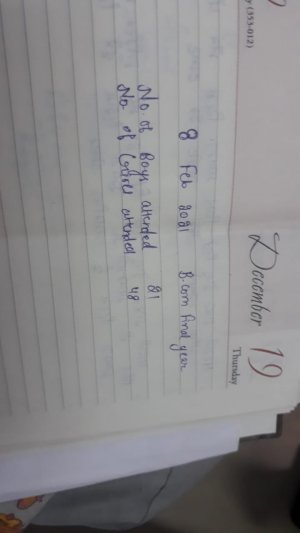 (353-012)
December 19
Thursday
8 Feb 2021 B.com Final year
No. of Boys attended 21
No. of Girls attended 48